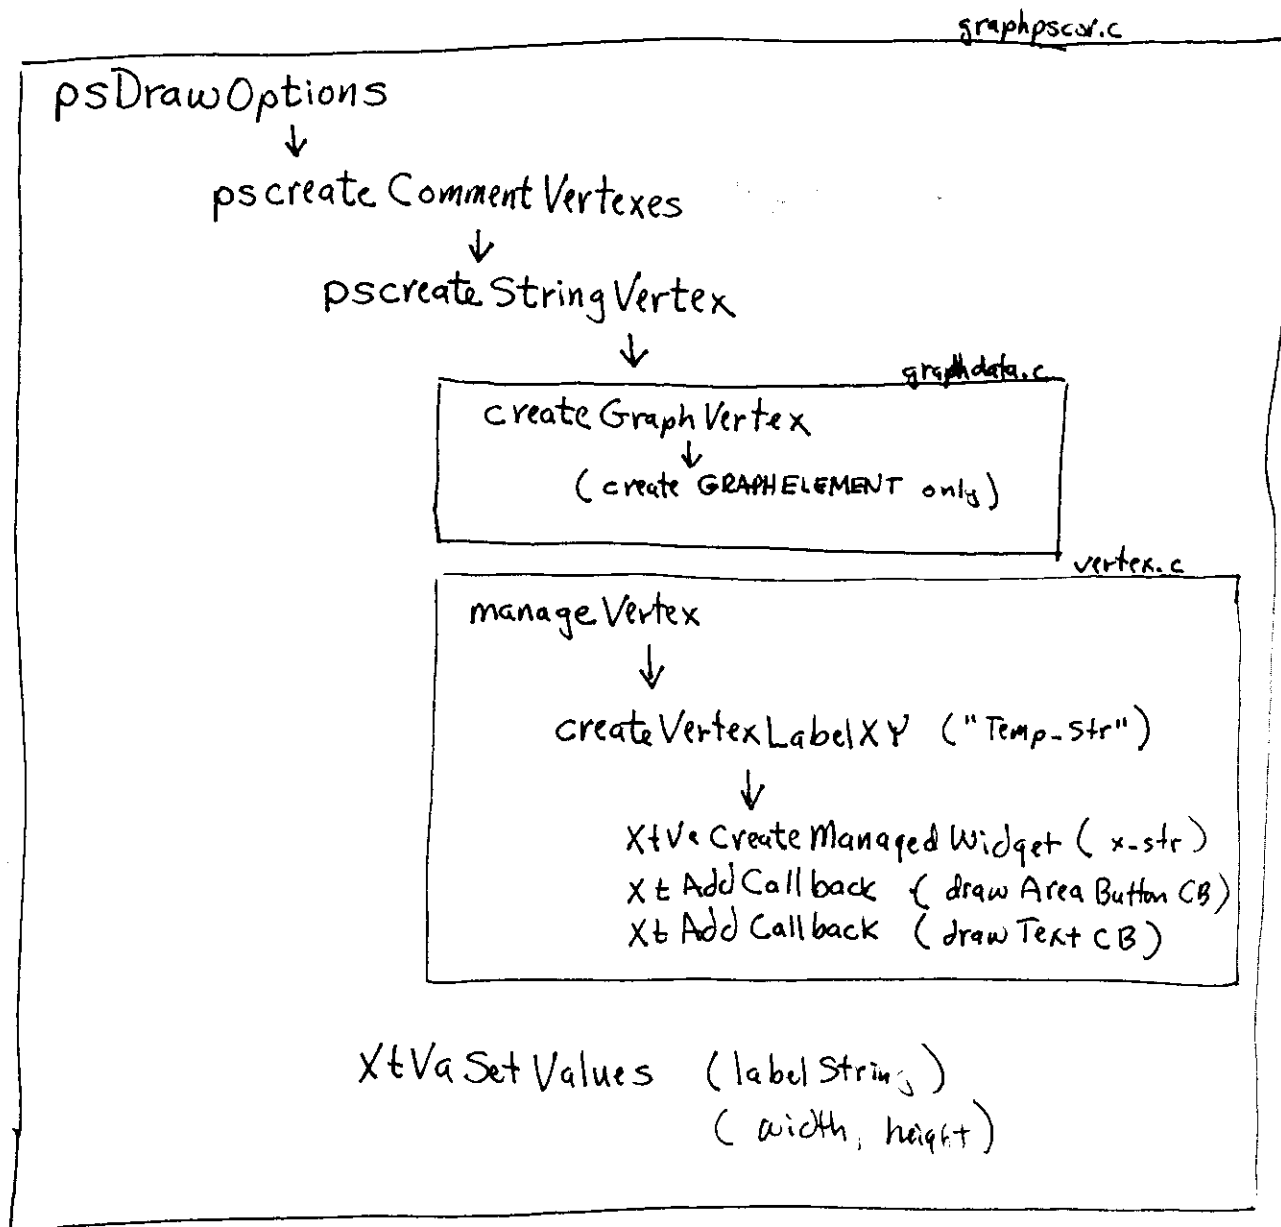 graphpscov.c
psDrawOptions
↓
pscreateCommentVertexes
↓
pscreateStringVertex
↓
graphdata.c
createGraphVertex
↓
(create GRAPHELEMENT only)
vertex.c
manageVertex
↓
createVertexLabelXY ("Temp-Str")
↓
XtVaCreateManagedWidget (x-str)
XtAddCallback (drawAreaButtonCB)
XtAddCallback (drawTextCB)
XtVaSetValues (labelString)
(width, height)